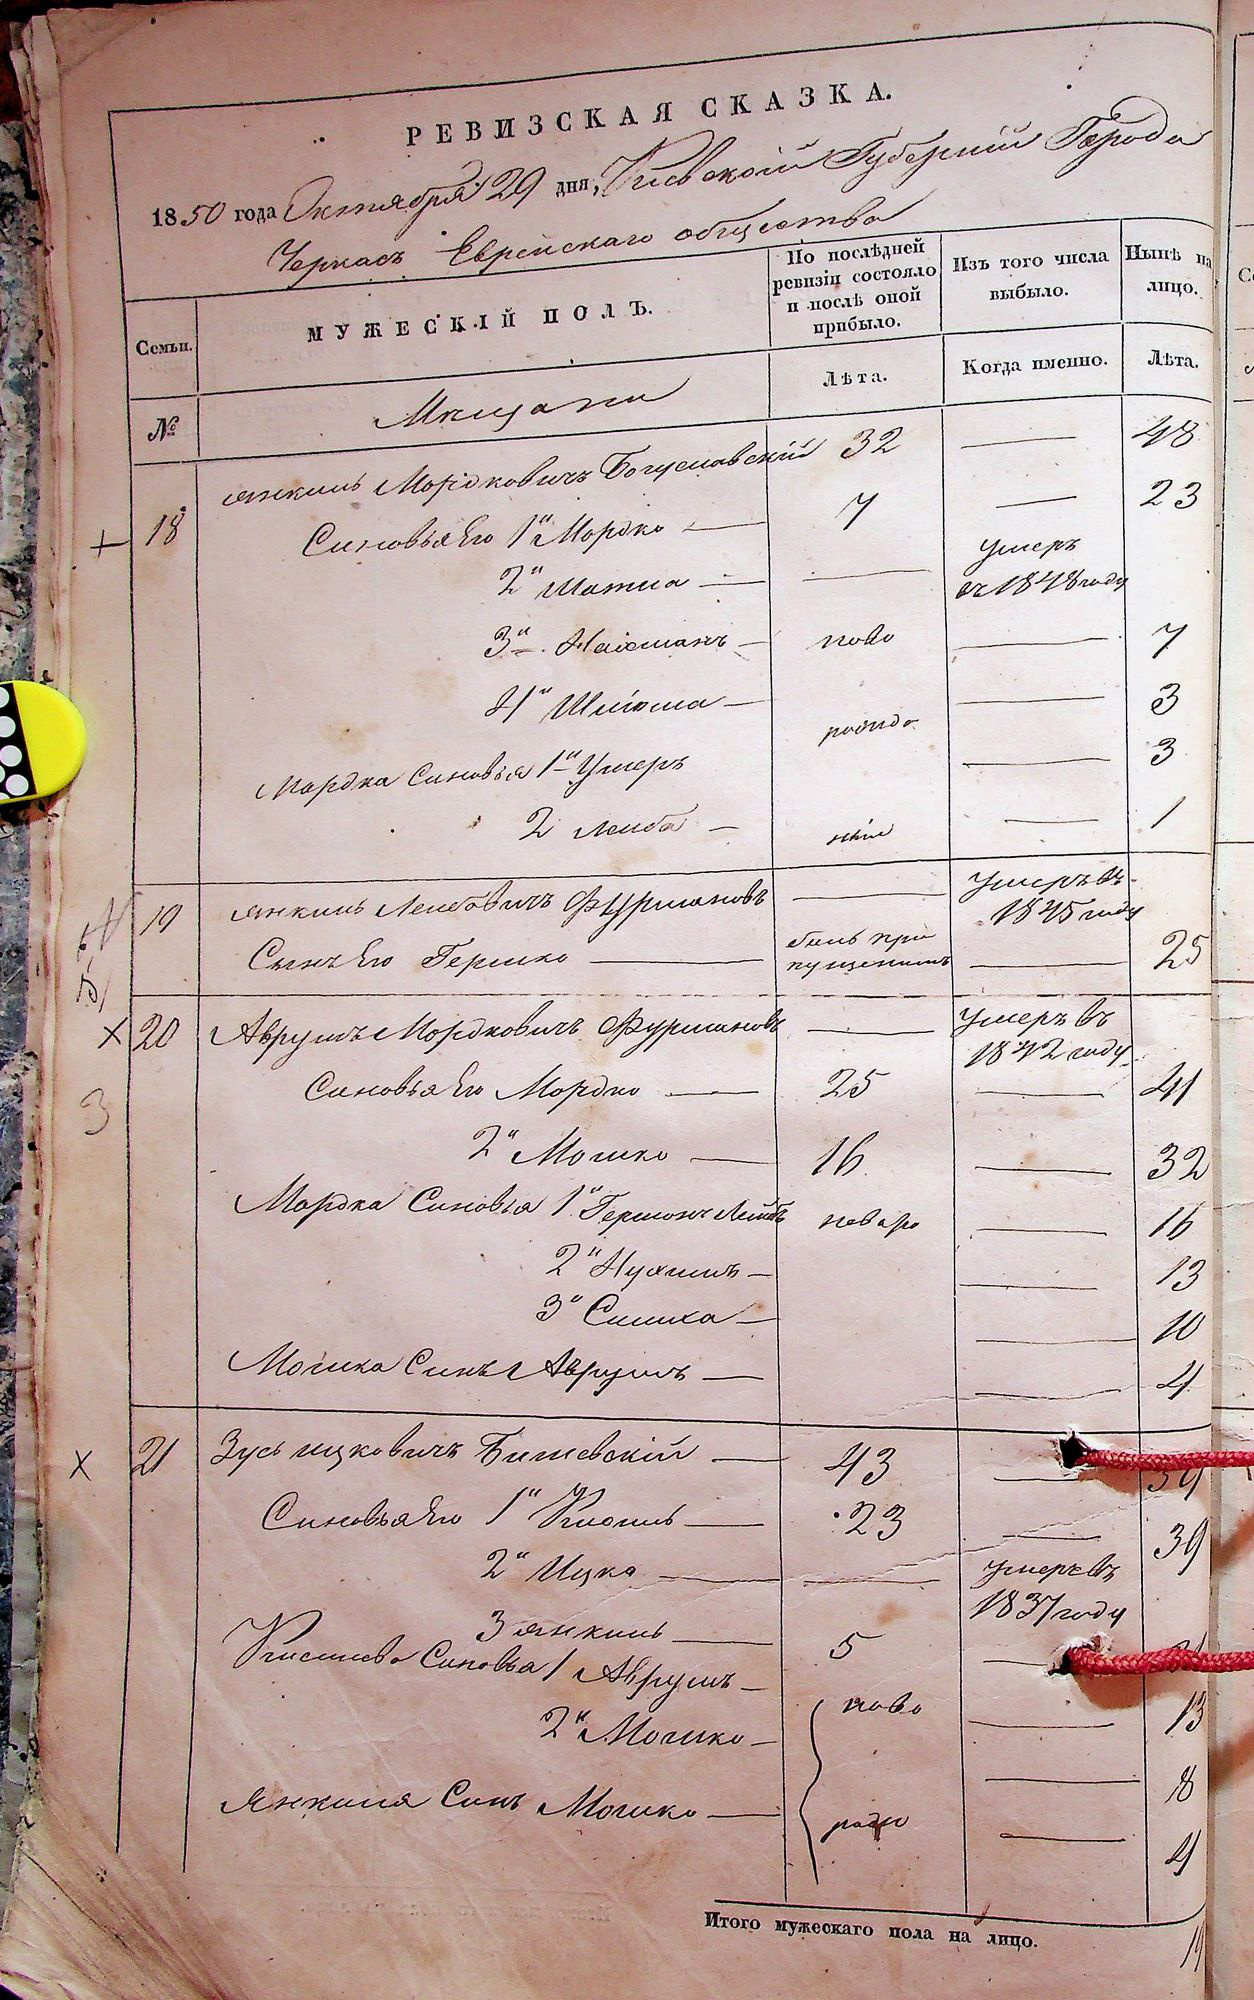 РЕВИЗСКАЯ СКАЗКА.
1850 года Октября 29 дня, Киевской Губернии Города
Черкасъ Еврейскаго общества
Семьи. МУЖЕСКІЙ ПОЛЪ. По послѣдней ревизіи состояло и послѣ оной прибыло. Изъ того числа выбыло. Нынѣ на лицо.
№ Мещани Лѣта. Когда именно. Лѣта.
18 Янкиль Мордковичъ Богуславскій 32 — 48
Синовья Его 1й Мордко — 7 — 23
2й Шатма — — умеръ въ 1848 году
3й Нахманъ — ново — 7
4й — — 3
Мордка Синовья 1й Умеръ рожде — 3
2 Лейба — ніи — 1
19 Янкиль Лейбовичъ Фурмановъ — умеръ въ 1845 году
Сынъ Его Гершко — былъ пропущенъ — 25
X 20 Аврумъ Мордковичъ Фурмановъ — умеръ въ 1842 году
3
Синовья Его Мордко — 25 — 41
2й Мошко — 16 — 32
Мордка Синовья 1й Гершонъ Лейбъ — 16
2й Нухимъ — — 13
3й Симха — — 10
Мошка Синъ Аврумъ — — 4
X 21 Зусь Ицковичъ Бишевскій — 43 — 59
Синовья Его 1й — 23 — 39
2й Ицка — — умеръ въ 1837 году
3 Янкиль — 5 — 21
Синовья 1 Аврумъ — ново — 13
2й Мошко — — 8
Янкиля Синъ Мошко — — 4
Итого мужескаго пола на лицо. 19